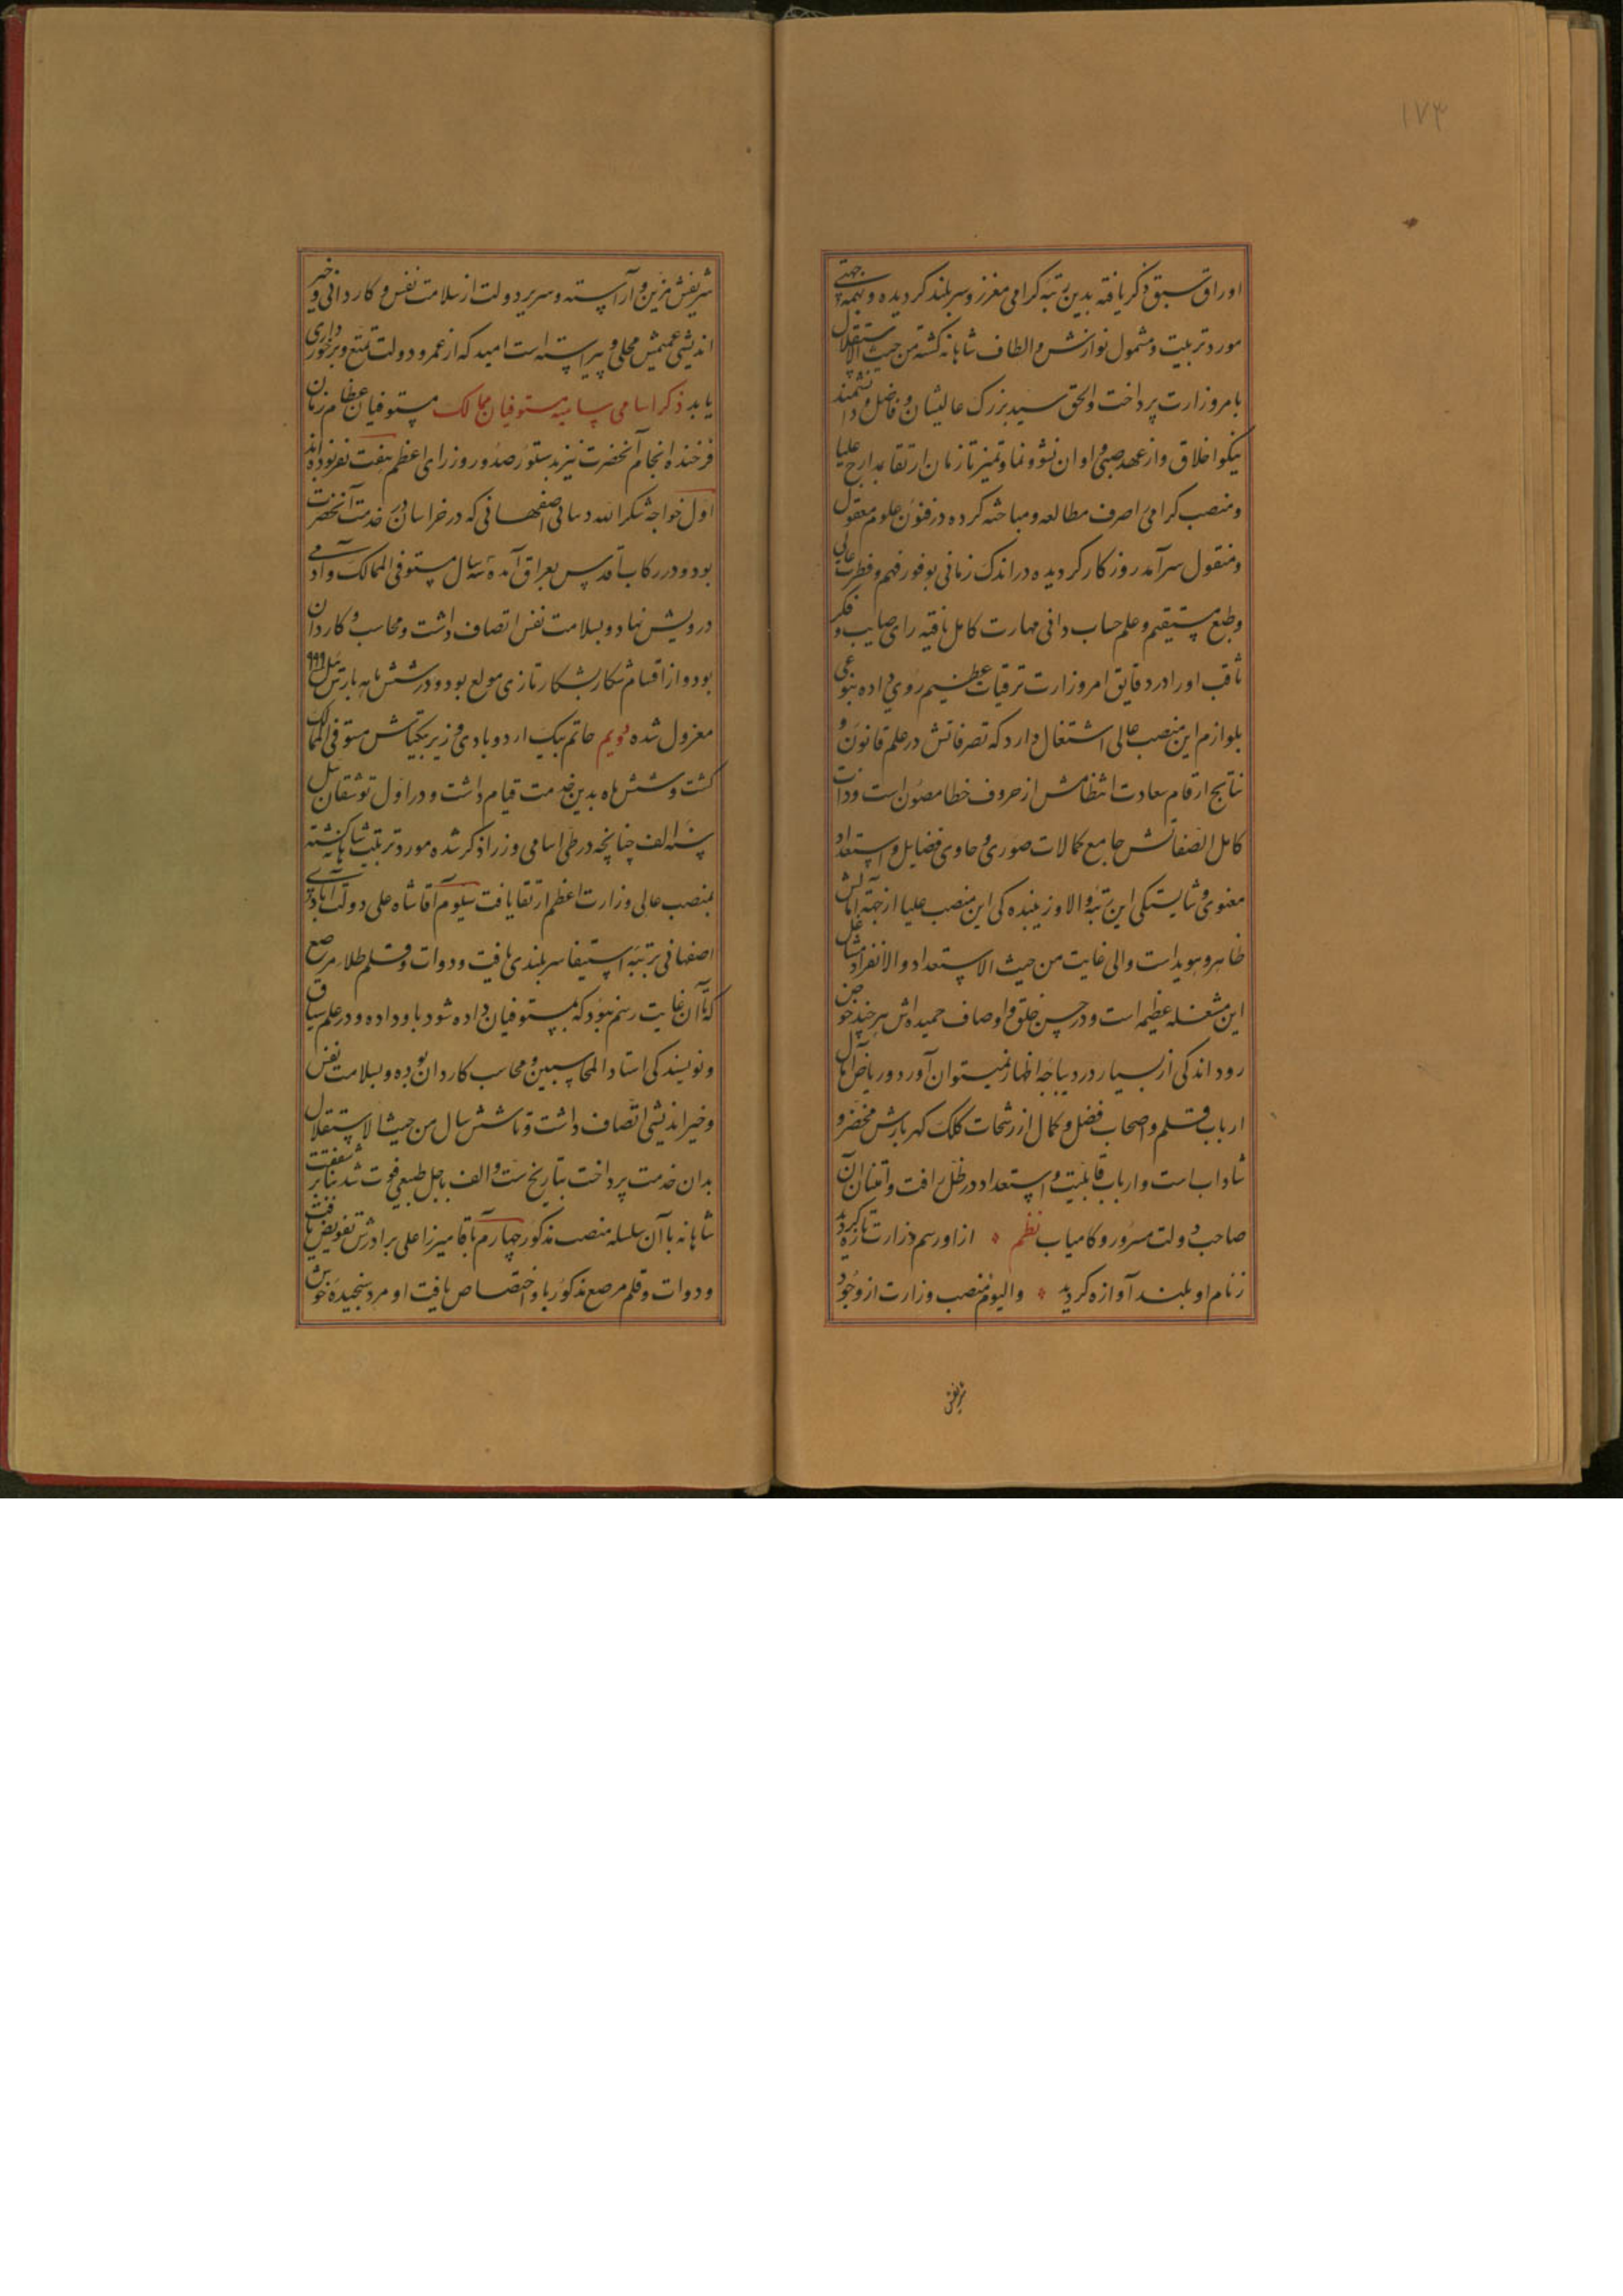 ۱۷۳
اوراق سبق ذکر یافته بدین رتبه کرامی معزز و سربلند کردیده و بهمه جهتی
مورد تربیت و مشمول نوازش و الطاف شاهانه کشته من حیث الاستقلال
بامر وزارت پرداخت والحق سید بزرک عالیشان و فاضل و دانشمند
نیکو اخلاق و از عهد صبی و اوان نشو و نما و تمیز تا زمان ارتقا بمدارج علیا
و منصب کرامی اصرف مطالعه و مباحثه کرده در فنون علوم معقول
و منقول سرآمد روزکار کردیده در اندک زمانی بوفور فهم و فطرت عالی
و طبع مستقیم و علم حساب دانی مهارت کامل یافته رای صایب و فکر
ثاقب او را در دقایق امر وزارت ترقیات عظیم روی داده بنوعی
بلوازم این منصب عالی اشتغال دارد که تصرفاتش در علم قانون و
نتایج ارقام سعادت انتظامش از حروف خطا مصون است و ذات
کامل الصفاتش جامع کمالات صوری و حاوی فضایل و استعداد
معنوی و شایستکی این رتبه والا و زیبنده کی این منصب علیا از جبهه آمالش
ظاهر و هویداست و الی غایت من حیث الاستعداد و الانفراد شاغل
این مشغله عظیمه است و در حسن خلق و اوصاف حمیده اش هر چند خوض
رود اندکی از بسیار در دیباجه اظهار نمیتوان آورد و ریاض آمال
ارباب قلم و اصحاب فضل و کمال از رشحات کلک کهربارش مخضر و
شادابست و ارباب قابلیت و استعداد در ظل رافت و امتنان آن
صاحب دولت مسرور و کامیاب نظم از او رسم وزارت تازه کردید
ز نام او بلند آوازه کردید والیوم منصب وزارت از وجود
شریفش
شریفش مزین و آراسته و سریر دولت از سلامت نفس و کاردانی و خیر
اندیشی عمیمش محلی و پیراسته است امید که از عمر و دولت تمتع و برخورداری
یابد ذکر اسامی سامیه مستوفیان ممالک مستوفیان عظام زمان
فرخنده انجام آنحضرت نیز بدستور صدور و وزرای اعظم هفت نفر بوده‌اند
اول خواجه شکرالله دسانی اصفهانی که در خراسان در خدمت آنحضرت
بود و در رکاب اقدس بعراق آمده سه سال مستوفی الممالک و آدمی
درویش نهاد و بسلامت نفس اتصاف داشت و محاسب و کاردان
بود و از اقسام شکار بشکار تازی مولع بود و در شش ماهه بارس ئیل ۹۹۹
معزول شده دویم حاتم بیک اردوبادی وزیر بیکتاش مستوفی الممالک
کشت و شش ماه بدین خدمت قیام داشت و در اول توشقان ئیل
سنه الف چنانچه در طی اسامی وزرا ذکر شده مورد تربیت شاهانه کشته
بمنصب عالی وزارت اعظم ارتقا یافت سیوم آقا شاه علی دولت‌آبادی
اصفهانی برتبه استیفا سربلندی یافت و دوات و قلم طلاء مرصع
که تا آن غایت رسم نبود که بمستوفیان داده شود باو داده و در علم سیاق
و نویسندکی استاد المحاسبین و محاسب کاردان بوده و بسلامت نفس
و خیراندیشی اتصاف داشت و تا شش سال من حیث الاستقلال
بدان خدمت پرداخت بتاریخ ست والف باجل طبیعی فوت شد بنا بر شفقت
شاهانه با آن سلسله منصب مذکور چهارم بآقا میرزا علی برادرش تفویض یافت
و دوات و قلم مرصع مذکور باو اختصاص یافت او مرد سنجیده خوش